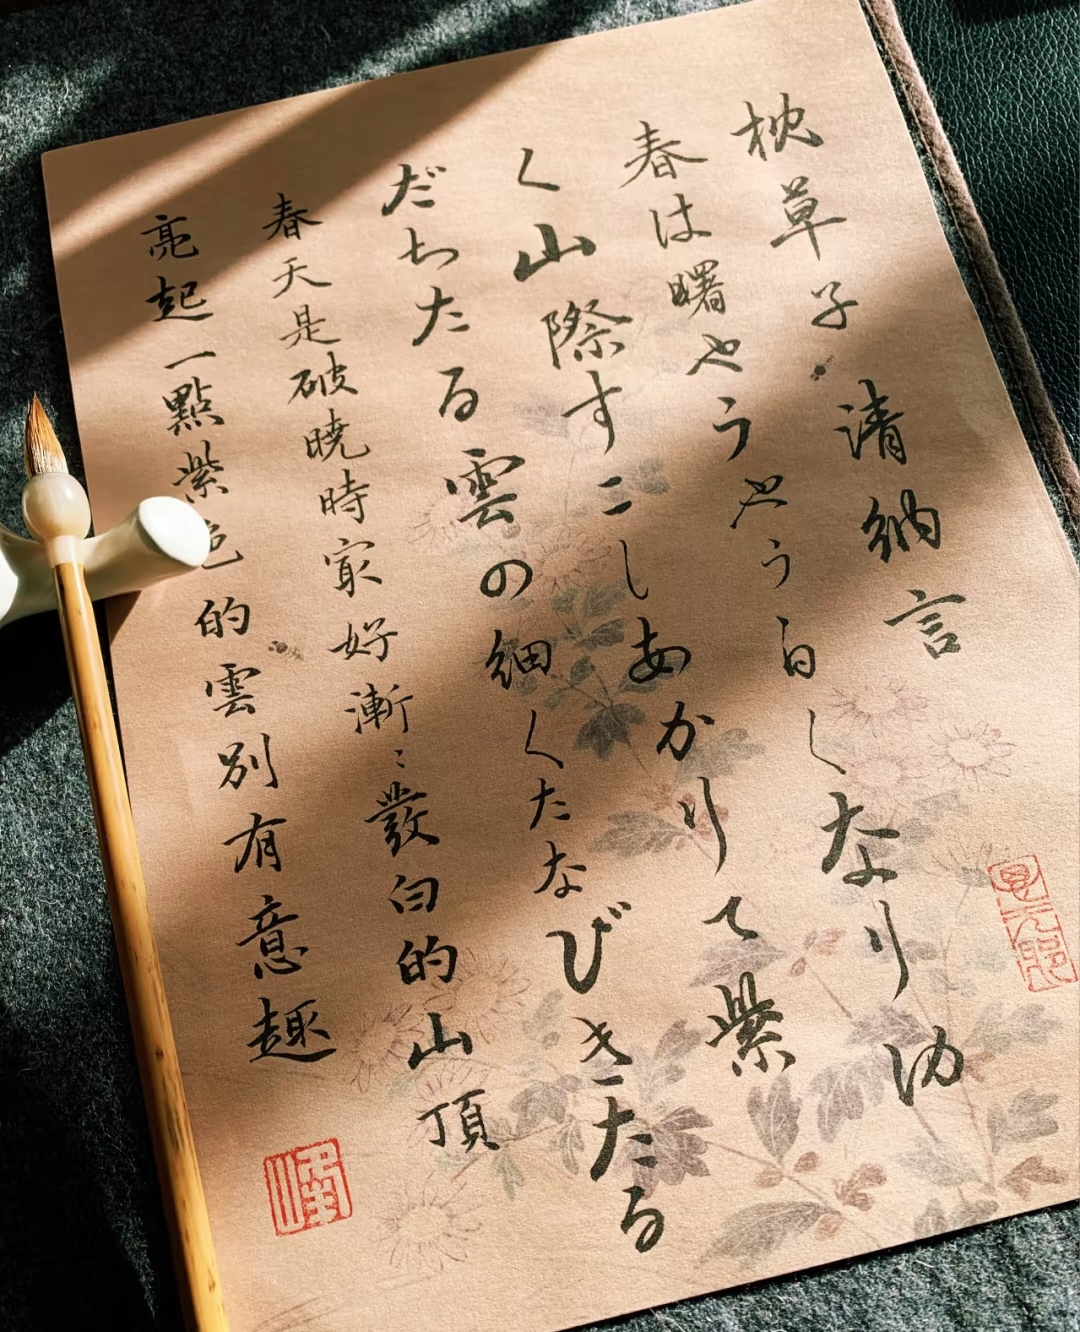 枕草子 清納言
春は曙やうやう白しなりゆ
く山際すこしあかりて紫
だちたる雲の細くたなびきたる
春天是破曉時寂好漸〻發白的山頂
亮起一點紫色的雲別有意趣